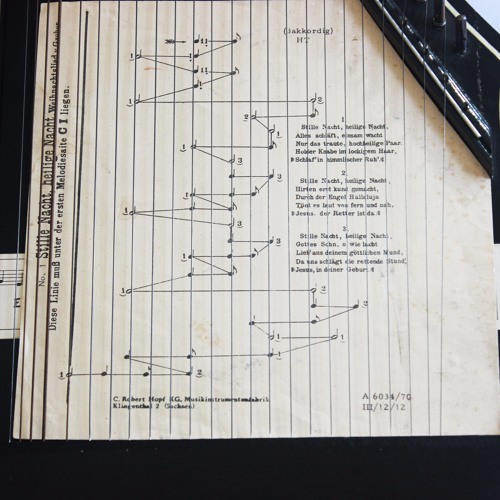 No. 1 Stille Nacht, heilige Nacht, Weihnachtslied v. Gruber
Diese Linie muß unter der ersten Melodiesaite C I liegen.
(3akkordig)
HT
1
Stille Nacht, heilige Nacht,
Alles schläft, einsam wacht
Nur das traute, hochheilige Paar.
Holder Knabe im lockigem Haar,
Schlaf' in himmlischer Ruh'.
2.
Stille Nacht, heilige Nacht,
Hirten erst kund gemacht,
Durch der Engel Halleluja
Tönt es laut von fern und nah,
Jesus, der Retter ist da.
3.
Stille Nacht, heilige Nacht,
Gottes Sohn, o wie lacht
Lieb' aus deinem göttlichen Mund,
Da uns schlägt die rettende Stund'
Jesus, in deiner Geburt.
C. Robert Hopf KG, Musikinstrumentenfabrik
Klingenthal 2 (Sachsen)
A 6034/70
III/12/12